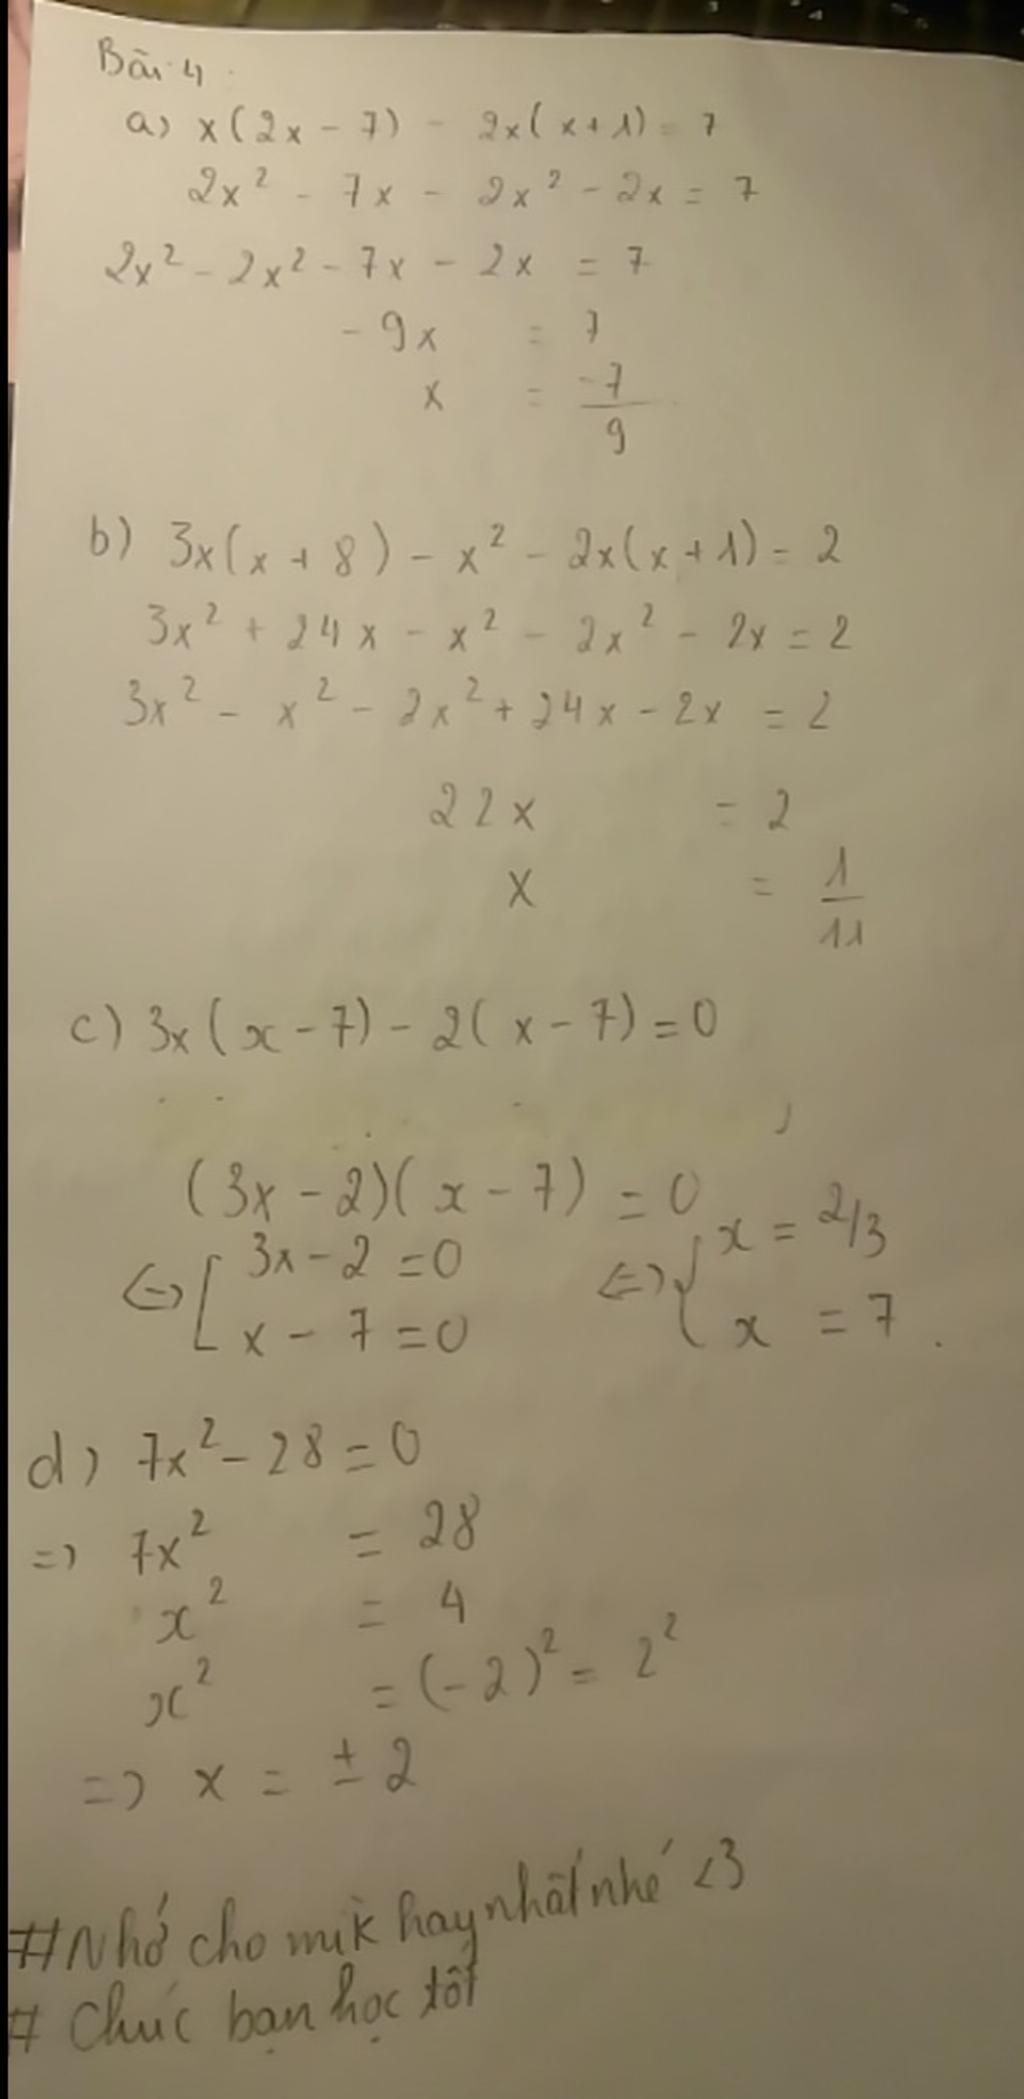 Bài 4
a) x(2x - 7) - 2x(x + 1) = 7
2x² - 7x - 2x² - 2x = 7
2x² - 2x² - 7x - 2x = 7
-9x = 7
x = -7/9
b) 3x(x + 8) - x² - 2x(x + 1) = 2
3x² + 24x - x² - 2x² - 2x = 2
3x² - x² - 2x² + 24x - 2x = 2
22x = 2
x = 1/11
c) 3x(x - 7) - 2(x - 7) = 0
(3x - 2)(x - 7) = 0
⇔ [ 3x - 2 = 0 ⇔ { x = 2/3
x - 7 = 0 x = 7.
d) 7x² - 28 = 0
=> 7x² = 28
x² = 4
x² = (-2)² = 2²
=> x = ± 2
#Nhớ cho mik hay nhất nhé <3
# Chúc bạn học tốt